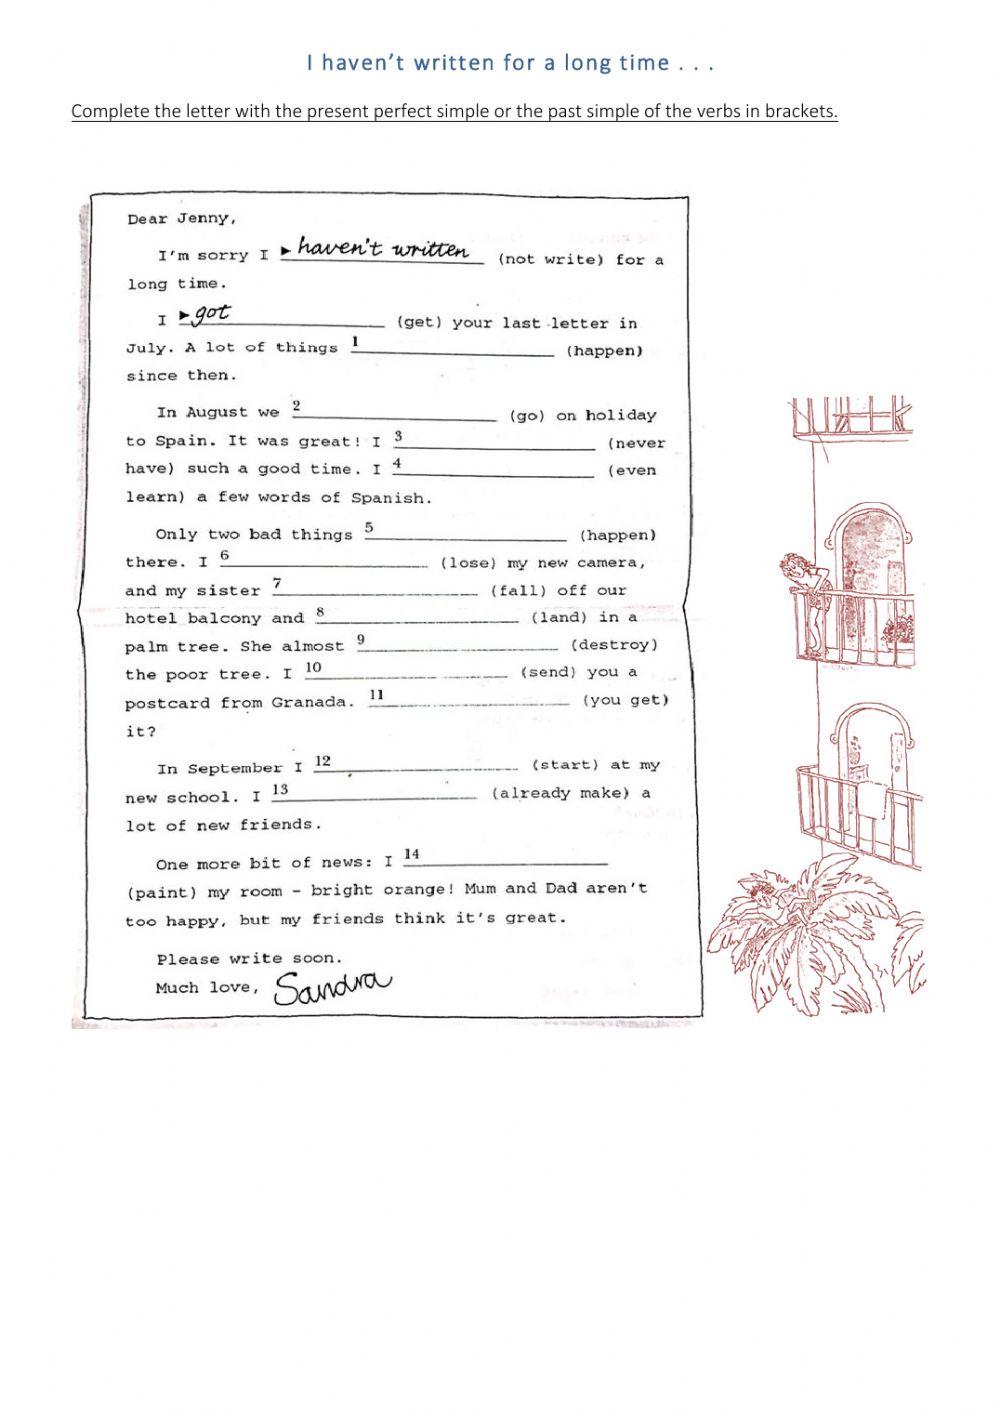 I haven't written for a long time . . .
Complete the letter with the present perfect simple or the past simple of the verbs in brackets.
Dear Jenny,
I'm sorry I ► haven't written (not write) for a
long time.
I ► got (get) your last letter in
July. A lot of things 1 (happen)
since then.
In August we 2 (go) on holiday
to Spain. It was great! I 3 (never
have) such a good time. I 4 (even
learn) a few words of Spanish.
Only two bad things 5 (happen)
there. I 6 (lose) my new camera,
and my sister 7 (fall) off our
hotel balcony and 8 (land) in a
palm tree. She almost 9 (destroy)
the poor tree. I 10 (send) you a
postcard from Granada. 11 (you get)
it?
In September I 12 (start) at my
new school. I 13 (already make) a
lot of new friends.
One more bit of news: I 14
(paint) my room – bright orange! Mum and Dad aren't
too happy, but my friends think it's great.
Please write soon.
Much love, Sandra